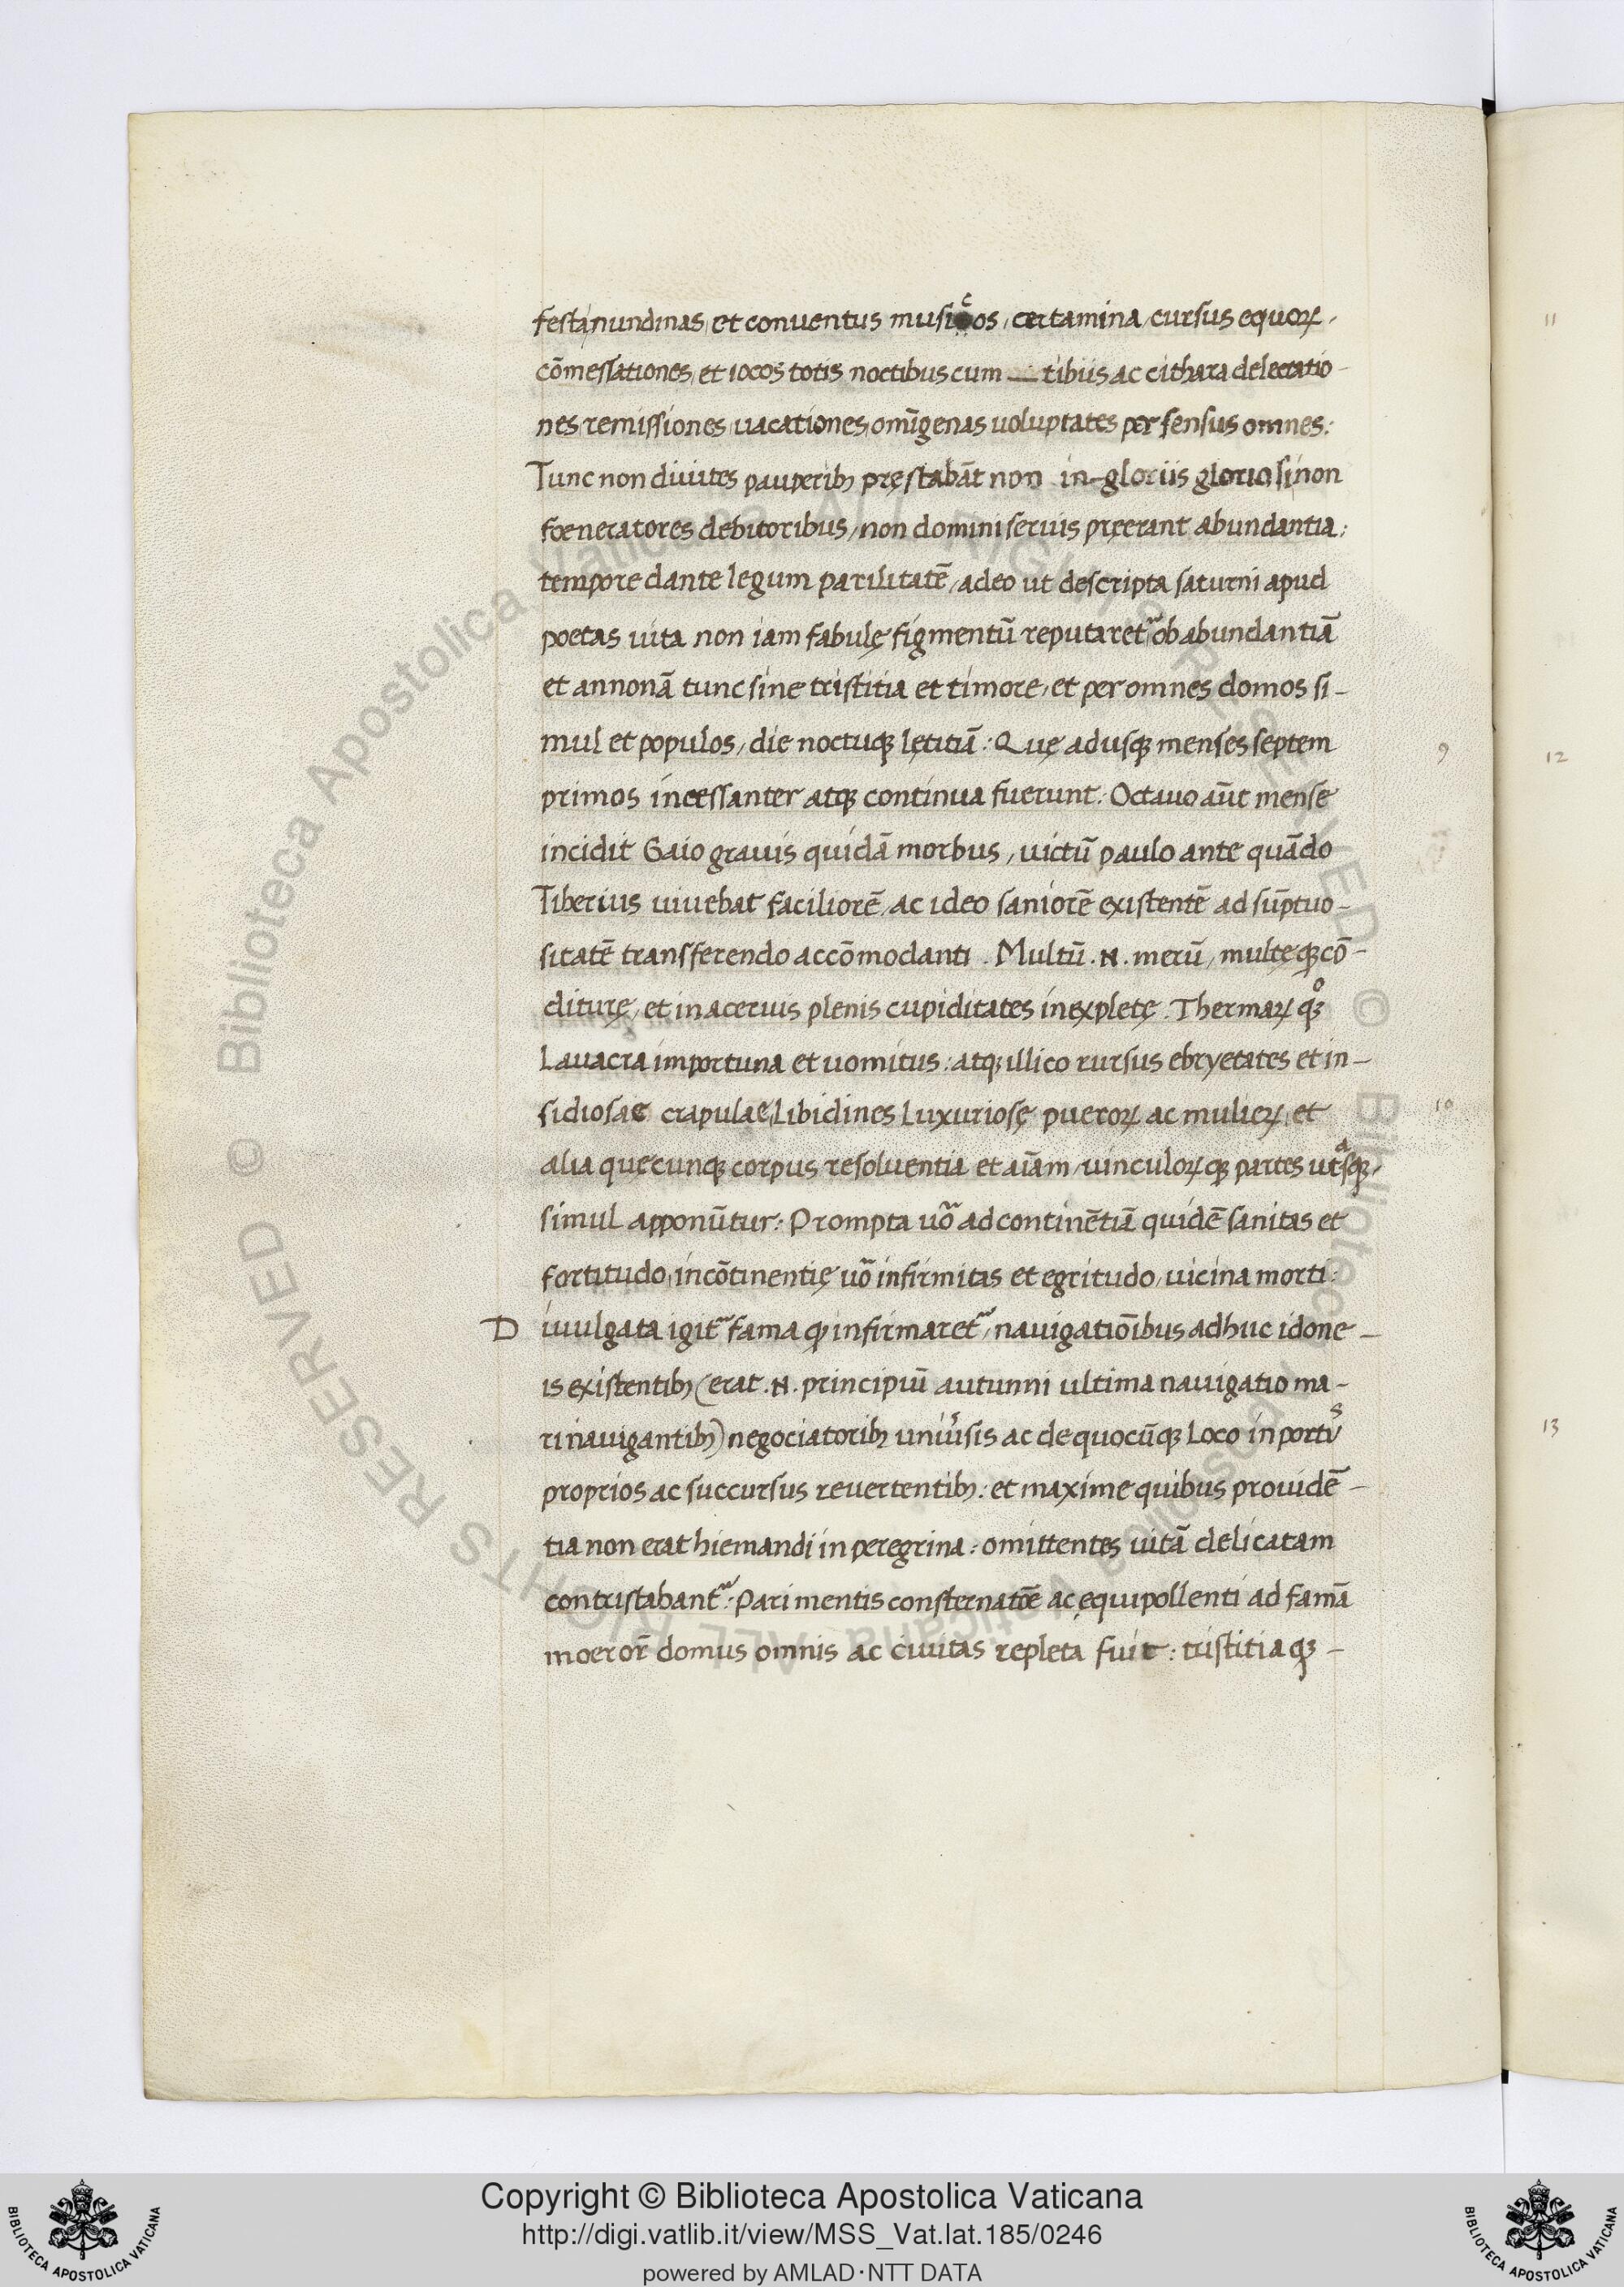 festa, nundinas, et conuentus musicos, certamina, cursus equoꝝ,
cōmessationes, et iocos totis noctibus cum — tibiis ac cithara delectatio-
nes, remissiones, uacationes, om̄igenas uoluptates per sensus omnes:
Tunc non diuites pauperibꝫ pręstabāt non in-gloriis gloriosi, non
foeneratores debitoribus, non domini seruis pręerant abundantia:
tempore dante legum parilitatē, adeo ut descripta saturni apud
poetas uita non iam fabulę figmentū reputaretᷓ ob abundantiā
et annonā tunc sine tristitia et timore, et per omnes domos si-
mul et populos, die noctuqꝫ lętitiā: Quę adusqꝫ menses septem 9
primos incessanter atqꝫ continua fuerunt: Octauo aūt mense
incidit Gaio grauis quidā morbus, uictū paulo ante quādo
Tiberius uiuebat faciliorē, ac ideo saniorē existentē ad sūptuo-
sitatē transferendo accōmodanti. Multū .N. merū, multęqꝫ cō-
diturę, et in aceruis plenis cupiditates inexpletę. Thermaꝝ qꝫͦ
Lauacra importuna et uomitus: atqꝫ illico rursus ebryetates et in-
sidiosae crapulae, Libidines Luxuriosę pueroꝝ ac mulieꝝ, et 10
alia quęcunqꝫ corpus resoluentia et aīam, uinculoꝝqꝫ partes utͣsqꝫ,
simul apponūtur: Prompta uō ad continētiā quidē sanitas et
fortitudo, incōtinentię uō infirmitas et egritudo, uicina morti:
D iuulgata igitᷓ fama qꝫ infirmaretᷓ, nauigatiōibus adhuc idone-
is existentibꝫ (erat .N. principiū autunni ultima nauigatio ma-
ri nauigantibꝫ) negociatoribꝫ uniu͛sis ac de quocūqꝫ Loco in portuˢ 13
proprios ac succursus reuertentibꝫ: et maxime quibus prouidē-
tia non erat hiemandi in peregrina: omittentes uitā delicatam
contristabantᷓ: Pari mentis consternatōe ac ęquipollenti ad famā
moeror̄ domus omnis ac ciuitas repleta fuit: tristitiaqꝫ-
11
12
Copyright © Biblioteca Apostolica Vaticana
http://digi.vatlib.it/view/MSS_Vat.lat.185/0246
powered by AMLAD·NTT DATA
BIBLIOTECA APOSTOLICA VATICANA
BIBLIOTECA APOSTOLICA VATICANA
© Biblioteca Apostolica Vaticana ALL RIGHTS RESERVED
© Biblioteca Apostolica Vaticana ALL RIGHTS RESERVED